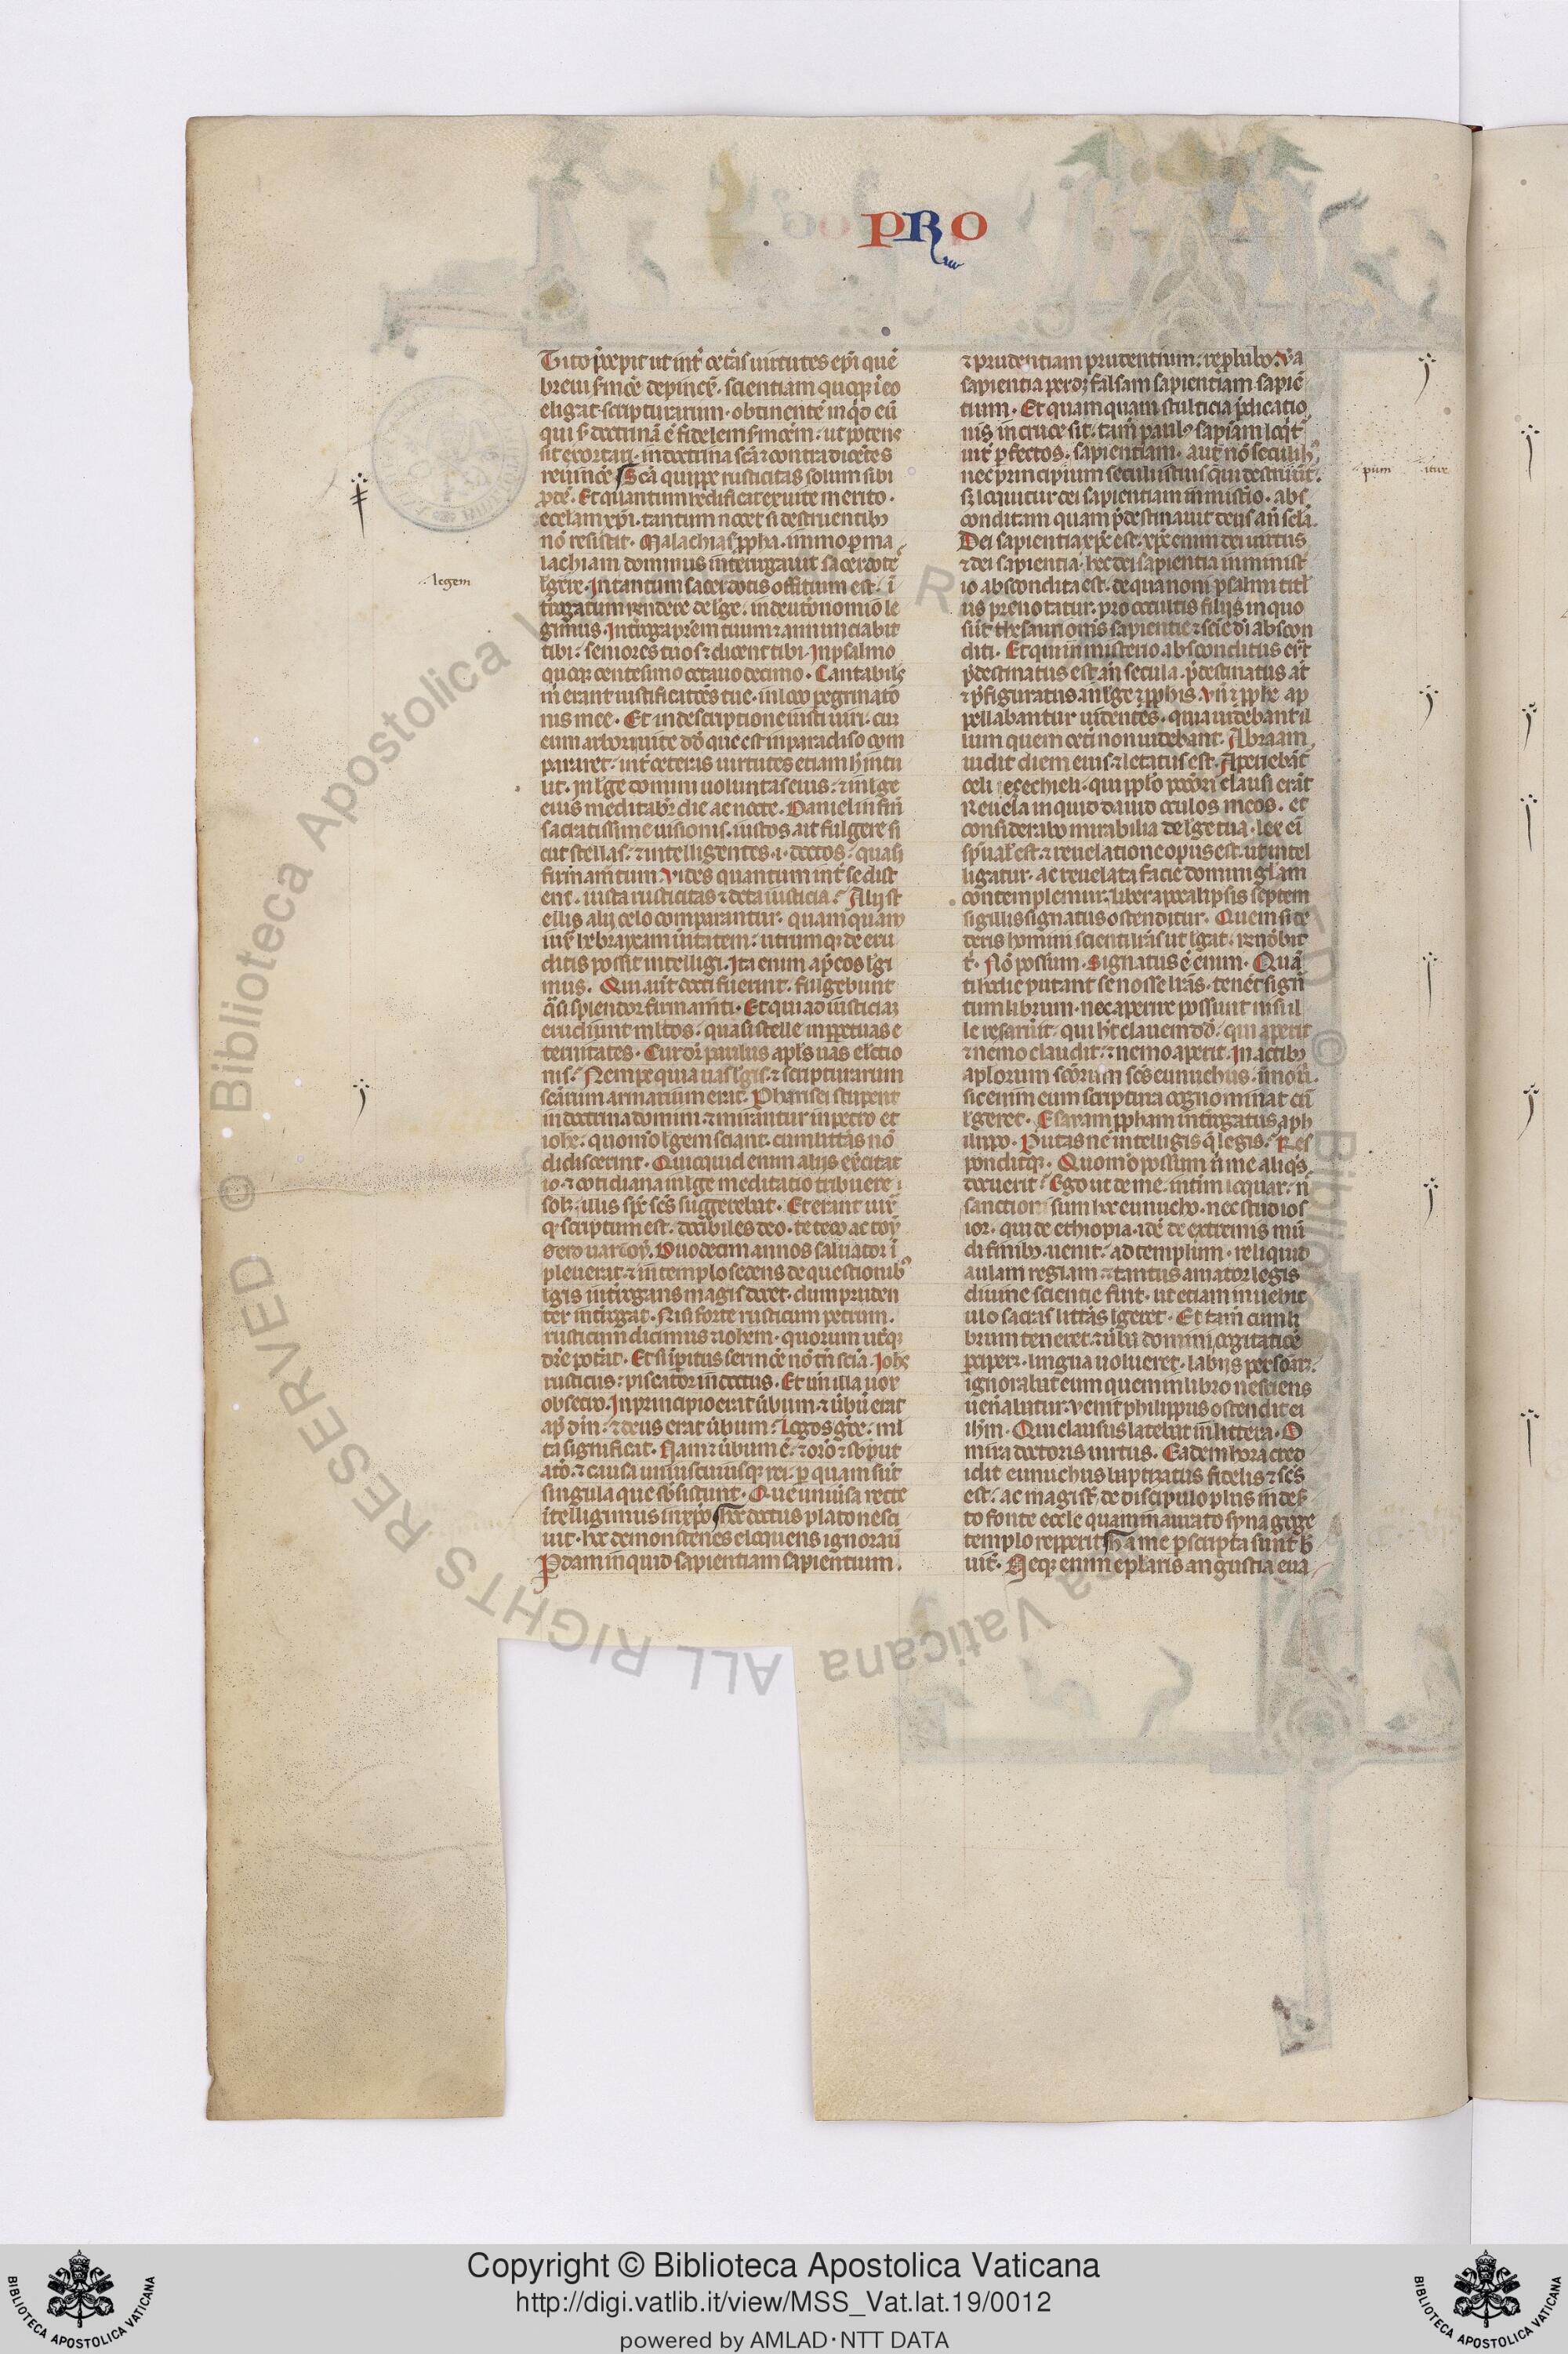 PRO
Tito p̄cepit ut int̄ cet̄as uirtutes ep̄i quē
breui s̄mōe depinx̄. scientiam quoq; ī eo
eligat scripturarum. obtinentē inq̄o eū
qui s̄ doctrinā ē fidelem s̄monem. ut potens
sit exortari. in doctrina sc̄a ⁊ contradicētes
reuincē. Sc̄a quippe rusticitas solum sibi
p̄dē. Et quantum edificat ex uite merito.
eccl̄am xp̄i. tantum nocet si destruentib;
nō resistit. Malachias ꝓph̄a. immo ꝑ ma
lachiam dominus interrogauit sacerdotē
legem
l̄gere. In tantum sacerdotis officium est. ī
t̄rogatum respondere de l̄ge. in deutronomio le
gimus. Int̄roga pr̄em tuum ⁊ annunciabit
tibi. seniores tuos ⁊ dicent tibi. In psalmo
quoq; centesimo octauo decimo. Cantabiles
m̄ erant iustificat̄oēs tue. in loco peregrinat̄o
nis mee. Et in descriptione iusti uiri. cuz
eum arbori uite dd̄ que est in paradiso com
pararet. int̄ ceteras uirtutes etiam h̄ intu
lit. In l̄ge domini uoluntas eius. ⁊ in l̄ge
eius meditabit̄ die ac nocte. Daniel in fine
sacratissime uisionis. iustos ait fulgere si
cut stellas. ⁊ intelligentes .i. doctos. quasi
firmamtum. Vides quantum int̄ se dist
ent. iusta rusticitas ⁊ docta iusticia. Alij st
ellis alij celo comparantur. quamquam
iux̄ hebraycam ūitatem. utrumq; de eru
ditis possit intelligi. Ita enim ap̄ eos l̄gi
mus. Qui aut̄ docti fuerint. fulgebunt
q̄si splendor firmam̄ti. Et qui ad iusticiaz
erudiunt ml̄tos. quasi stelle in ꝑpetuas e
ternitates. Cur dr̄ paulus apl̄s uas el̄ctio
nis. Nempe quia uas l̄gis ⁊ scripturarum
sc̄arum armarium erat. Pharisei stupent
in doctrina domini. ⁊ mirantur in petro et
iohe. quom̄o l̄gem sciant. cum litt̄as nō
didiscerint. Quicquid enim alijs ex̄citat
io ⁊ cotidiana in l̄ge meditatio tribuere
solz. illis sp̄c sc̄s suggerebat. Et erant iux̄
q̄ scriptum est. docibiles deo.
Duodecim annos saluator ī
pleuerat ⁊ in templo sedens de questionib;
l̄gis int̄rogans magis docet. dum pruden
ter int̄rogat. Nisi forte rusticum petrum.
rusticum dicimus ⁊ ioh̄em. quorum ut̄q;
dr̄e pot̄at. Et si īꝑitus sermōē nō tn̄ scīa. Joh̄s
rusticus. piscator indoctus. Et un̄ illa uox
obsecro. In principio erat ūbum. ⁊ ūbū erat
ap̄ dm̄. ⁊ deus erat ūbum. Logos gr̄ce. ml̄
ta significat. Nam ⁊ ūbum ē. ⁊ or̄o ⁊ sbput
at̄o. ⁊ causa uniuscuiusq; rei. ꝑ quam sūt
singula que sbsistunt. Que uniūsa recte
ītelligimus in xp̄o. Hec doctus plato nesci
uit. hec demostenes eloquens ignorauit
Perdam inquid sapientiam sapientium.
⁊ prudentiam prudentium. reprobabo. Va
sapientia perdz falsam sapientiam sapiē
tium. Et quamquam stulticia p̄dicatio
nis in cruce sit. tam̄ paul; sapīam loq̄t̄
int̄ ꝑfectos. sapientiam. aut̄ nō seculi h;
nec principium seculi istius qui destruūt̄.
pium itur
sz loquitur dei sapientiam in misterio. abs
conditam quam p̄destinauit deus an̄ sc̄la.
Dei sapientia xp̄c est. xp̄c enim dei uirtus
⁊ dei sapientia. hec dei sapientia in minist
io abscondita est. de qua noni psalmi titl̄
us prenotatur. pro occultis filijs in quo
sūt thesauri om̄s sapientie ⁊ scīe di abscon
diti. Et qui in misterio absconditus er̄t
p̄destinatus est an̄ secula. p̄destinatus at̄
⁊ p̄figuratus in l̄ge ⁊ ꝓph̄is. Vn̄ ⁊ ꝓphe ap
pellabantur uidentes. quia uidebant il
lum quem ceti non uidebant. Abraam
uidit diem eius ⁊ letatus est. Aperiebāt̄
celi ezechieli. qui ppl̄o peccōri clausi erāt
Reuela inquid dauid oculos meos. et
considerabo mirabilia de l̄ge tua. lex ei
sp̄ual̄ est. ⁊ reuelatione opus est. ut intel
ligatur. ac reuelata facie domini gl̄am
contemplemur. liber apocalipsis septem
sigillis signatus ostenditur. Quem si de
deris homini scienti lr̄as ut l̄gat. r̄ndebit
t̄. Nō possum. Signatus ē enim. Quā
ti hodie putant se nosse lr̄as. tenēt sign̄
tum librum. nec aperire possunt nisi il
le resarūit. qui h̄t clauem dd̄. qui aperit
⁊ nemo claudit. ⁊ nemo aperit. In actib;
aplorum scōrum sc̄s eunuchus. īmo uir.
sic enim eum scriptura cognominat cū
l̄geret. Esaiam ꝓpham int̄rogatus a ph
ilippo. Putas ne intelligis q̄ legis. Res
ponditq;. Quom̄o possum n̄ me aliq̄s
docuerit. Ego ut de me. int̄im loquar. n̄
sanctior sum hoc eunucho. nec studios
ior. qui de ethiopia. idē de extremis mū
di finib; uenit. ad templum. reliquid
aulam regiam. ⁊ tantus amator legis
diuine scientie fuit. ut etiam in uehic
ulo sacras litt̄as l̄geret. Et tam̄ cum li
brum teneret. ⁊ ūba domini cogitatiōe
ꝯciperz. lingua uolueret. labijs ꝑsonarz.
ignorabat eum quem in libro nesciens
ueñabatur. Venit philippus ostendit ei
ih̄m. Qui clausus latebat in littera. O
mira doctoris uirtus. Eadem hora cred
idit eunuchus baptizatus fidelis ⁊ sc̄s
est. ac magist̄ de discipulo plus in des̄
to fonte eccl̄e quam in aurato synagoge
templo repperit. Hec a me ꝑscripta sunt b̄
uit̄. Neq; enim eplaris angustia eua
Copyright © Biblioteca Apostolica Vaticana
http://digi.vatlib.it/view/MSS_Vat.lat.19/0012
powered by AMLAD·NTT DATA